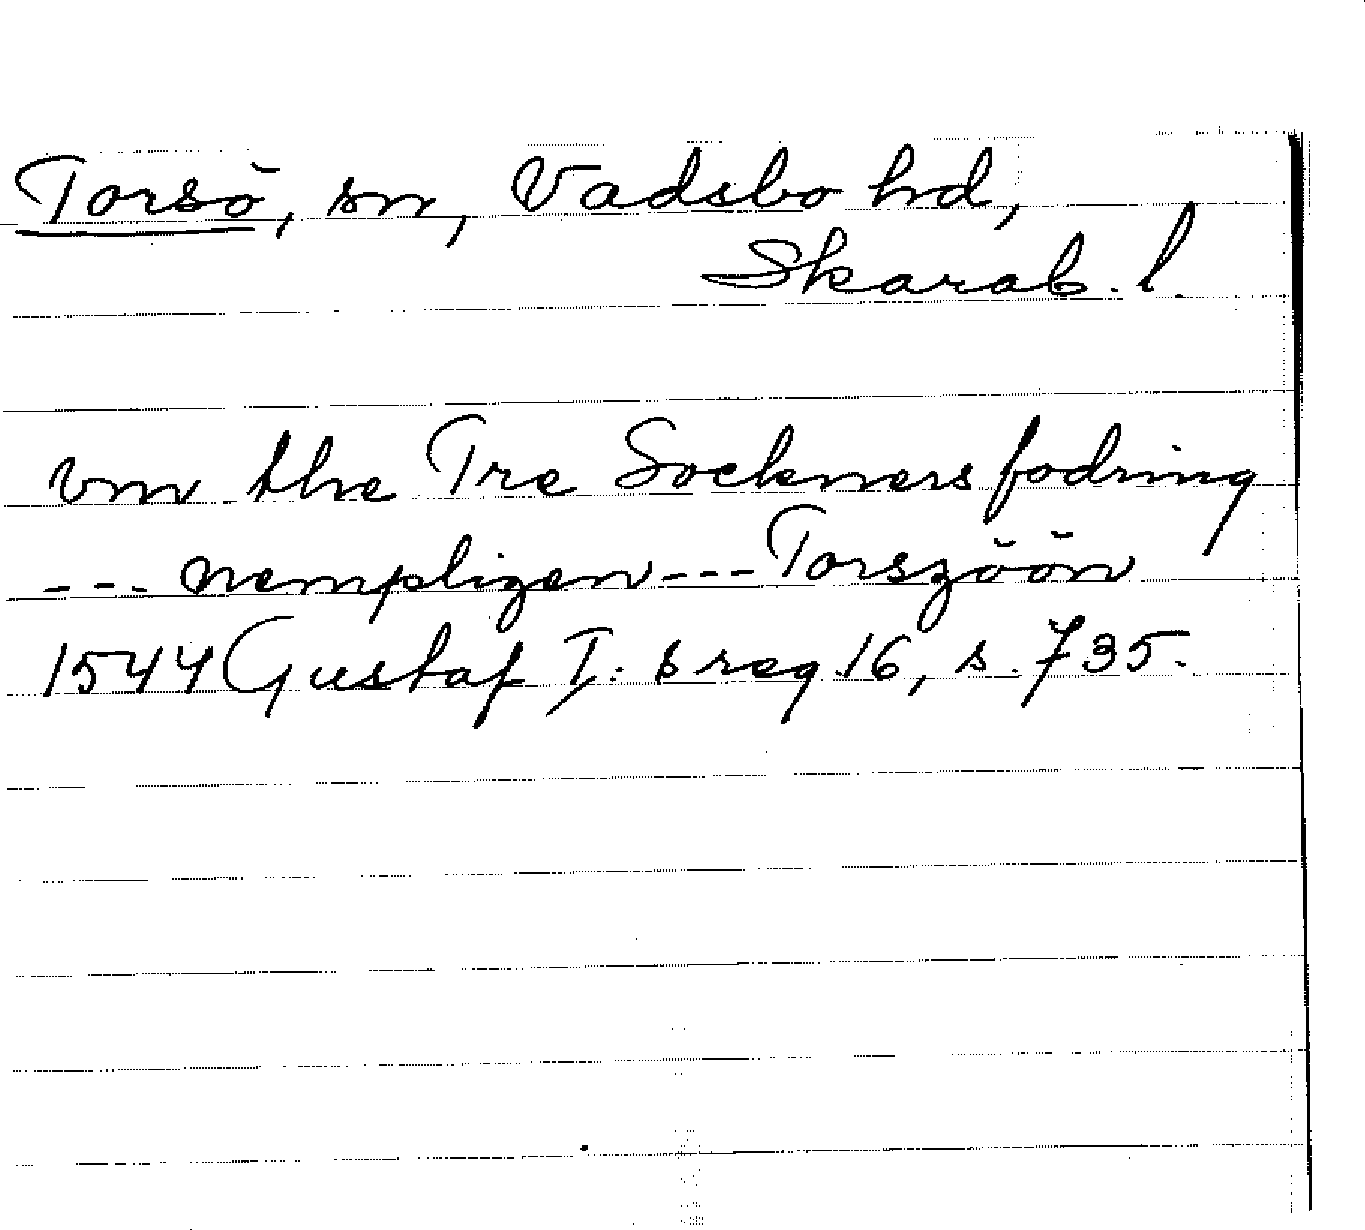 Torsö, sn, Vadsbo hd,
Skarab. l.
vm the Tre Sockners fodring
--- nempligen --- Torszöön
1544 Gustaf I:s reg 16, s. 735.